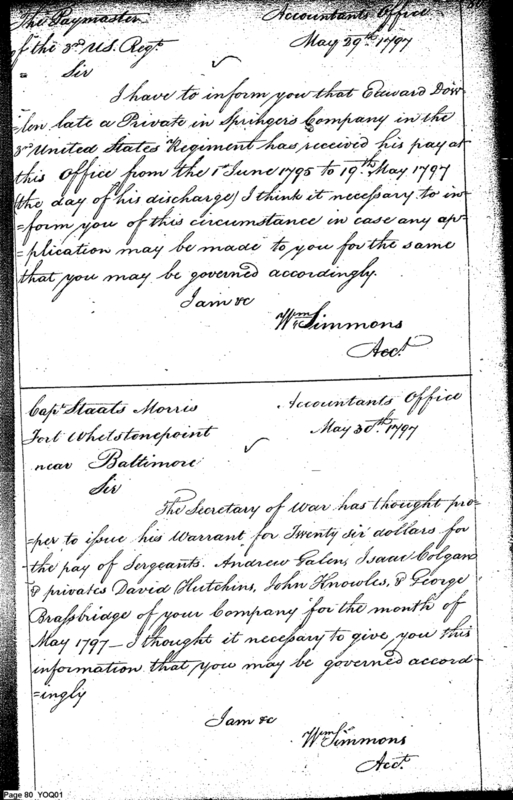 The Paymaster
of the 3rd U.S. Regt.
Accountants Office
May 29th 1797
Sir
I have to inform you that Edward Dow
=len late a Private in Springers Company in the
3d United States Regiment has received his pay at
this Office from the 1st June 1795 to 19th May 1797
(the day of his discharge) I think it necessary to in-
=form you of this circumstance in case any ap-
=plication may be made to you for the same
that you may be governed accordingly.
I am &c
Wm Simmons
Acct.
Capt. Staats Morris
Fort Whetstonepoint
near Baltimore
Accountants Office
May 30th 1797
Sir
The Secretary of War has thought pro-
=per to issue his Warrant for Twenty six dollars for
the pay of Sergeants. Andrew Galen, Isaac Colgan
& privates David Hutchins, John Knowles, & George
Brassbridge of your Company for the month of
May 1797 — I thought it necessary to give you this
information that you may be governed accord-
=ingly
I am &c
Wm Simmons
Acct.
Page 80 YOQ01